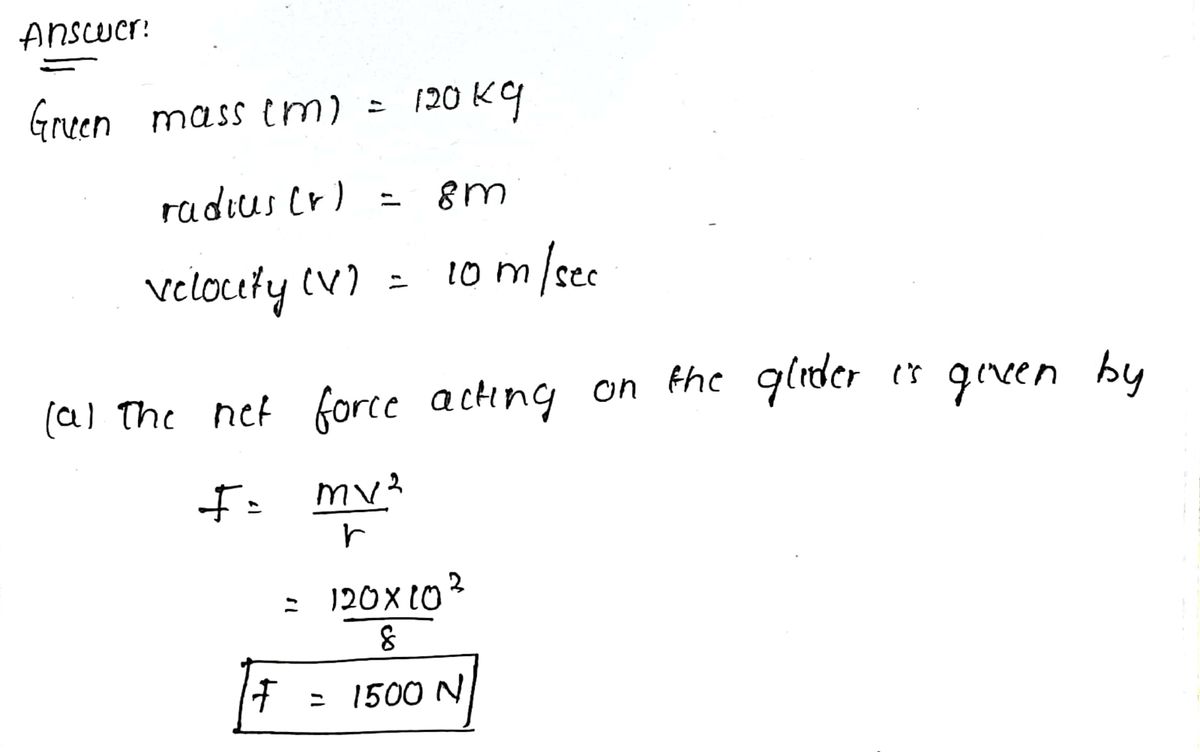 Answer:
Given mass (m) = 120 kg
radius (r) = 8m
velocity (v) = 10 m/sec
(a) The net force acting on the glider is given by
F = mv²
r
= 120×10²
8
F = 1500 N